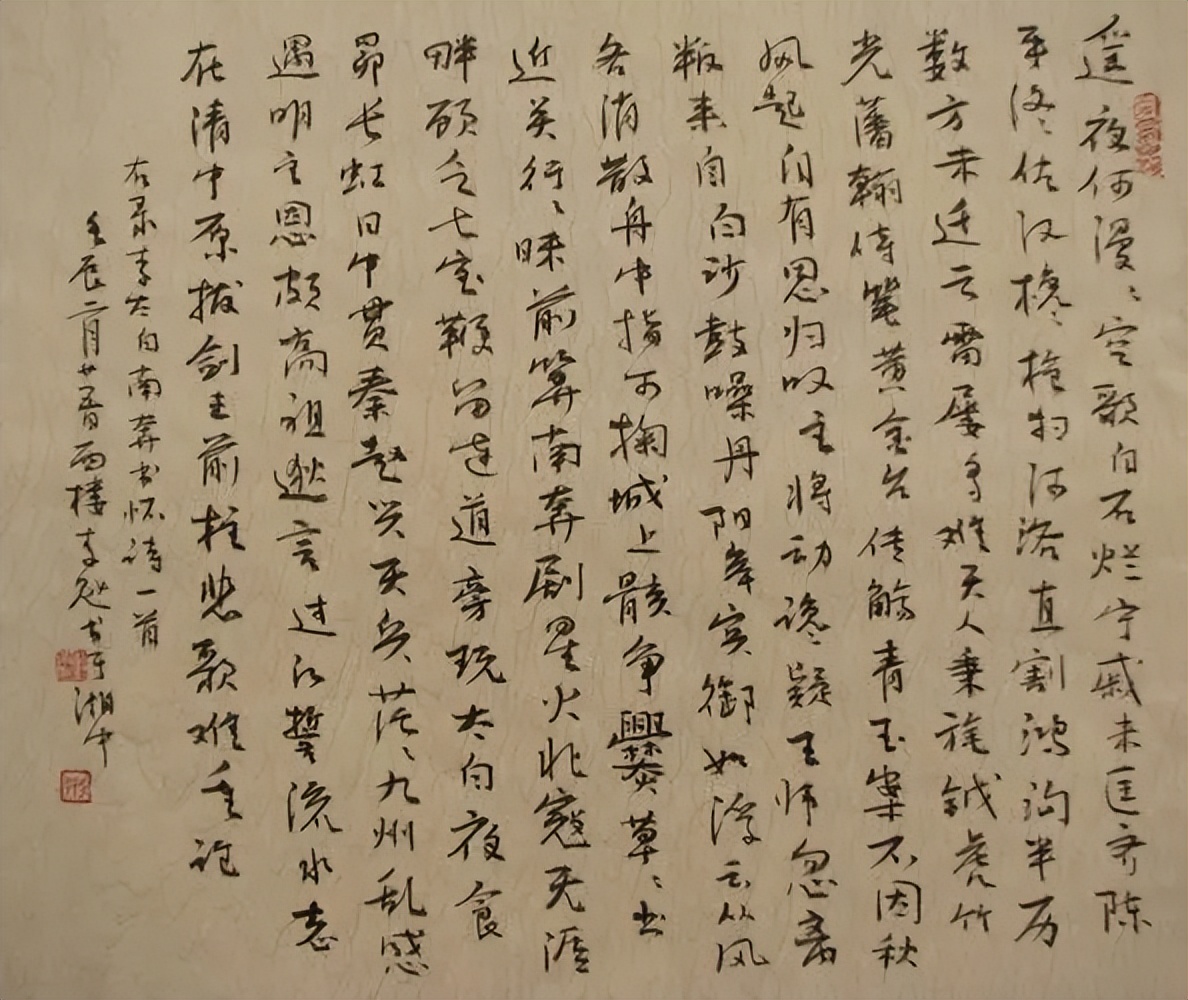 遥夜何漫〻空歌白石烂宁戚未匡齐陈
平终佐汉欃枪扫河洛直割鸿沟半历
数方未迁云雷屡多难天人秉旄钺虎竹
光藩翰侍笔黄金台传觞青玉案不因秋
风起自有思归叹主将动谗疑王师忽离
叛来自白沙鼓噪丹阳岸宾御如浮云从风
各消散舟中指可掬城上骸争爨草〻出
近关行〻昧前算南奔剧星火北寇无涯
畔顾乏七宝鞭留连道旁玩太白夜食
昴长虹日中贯秦赵兴天兵茫〻九州乱感
遇明主恩颇高祖逖言过江誓流水志
在清中原拔剑击前柱悲歌难重论
右录李太白南奔书怀诗一首
壬辰二月廿雨楼李书于湘中